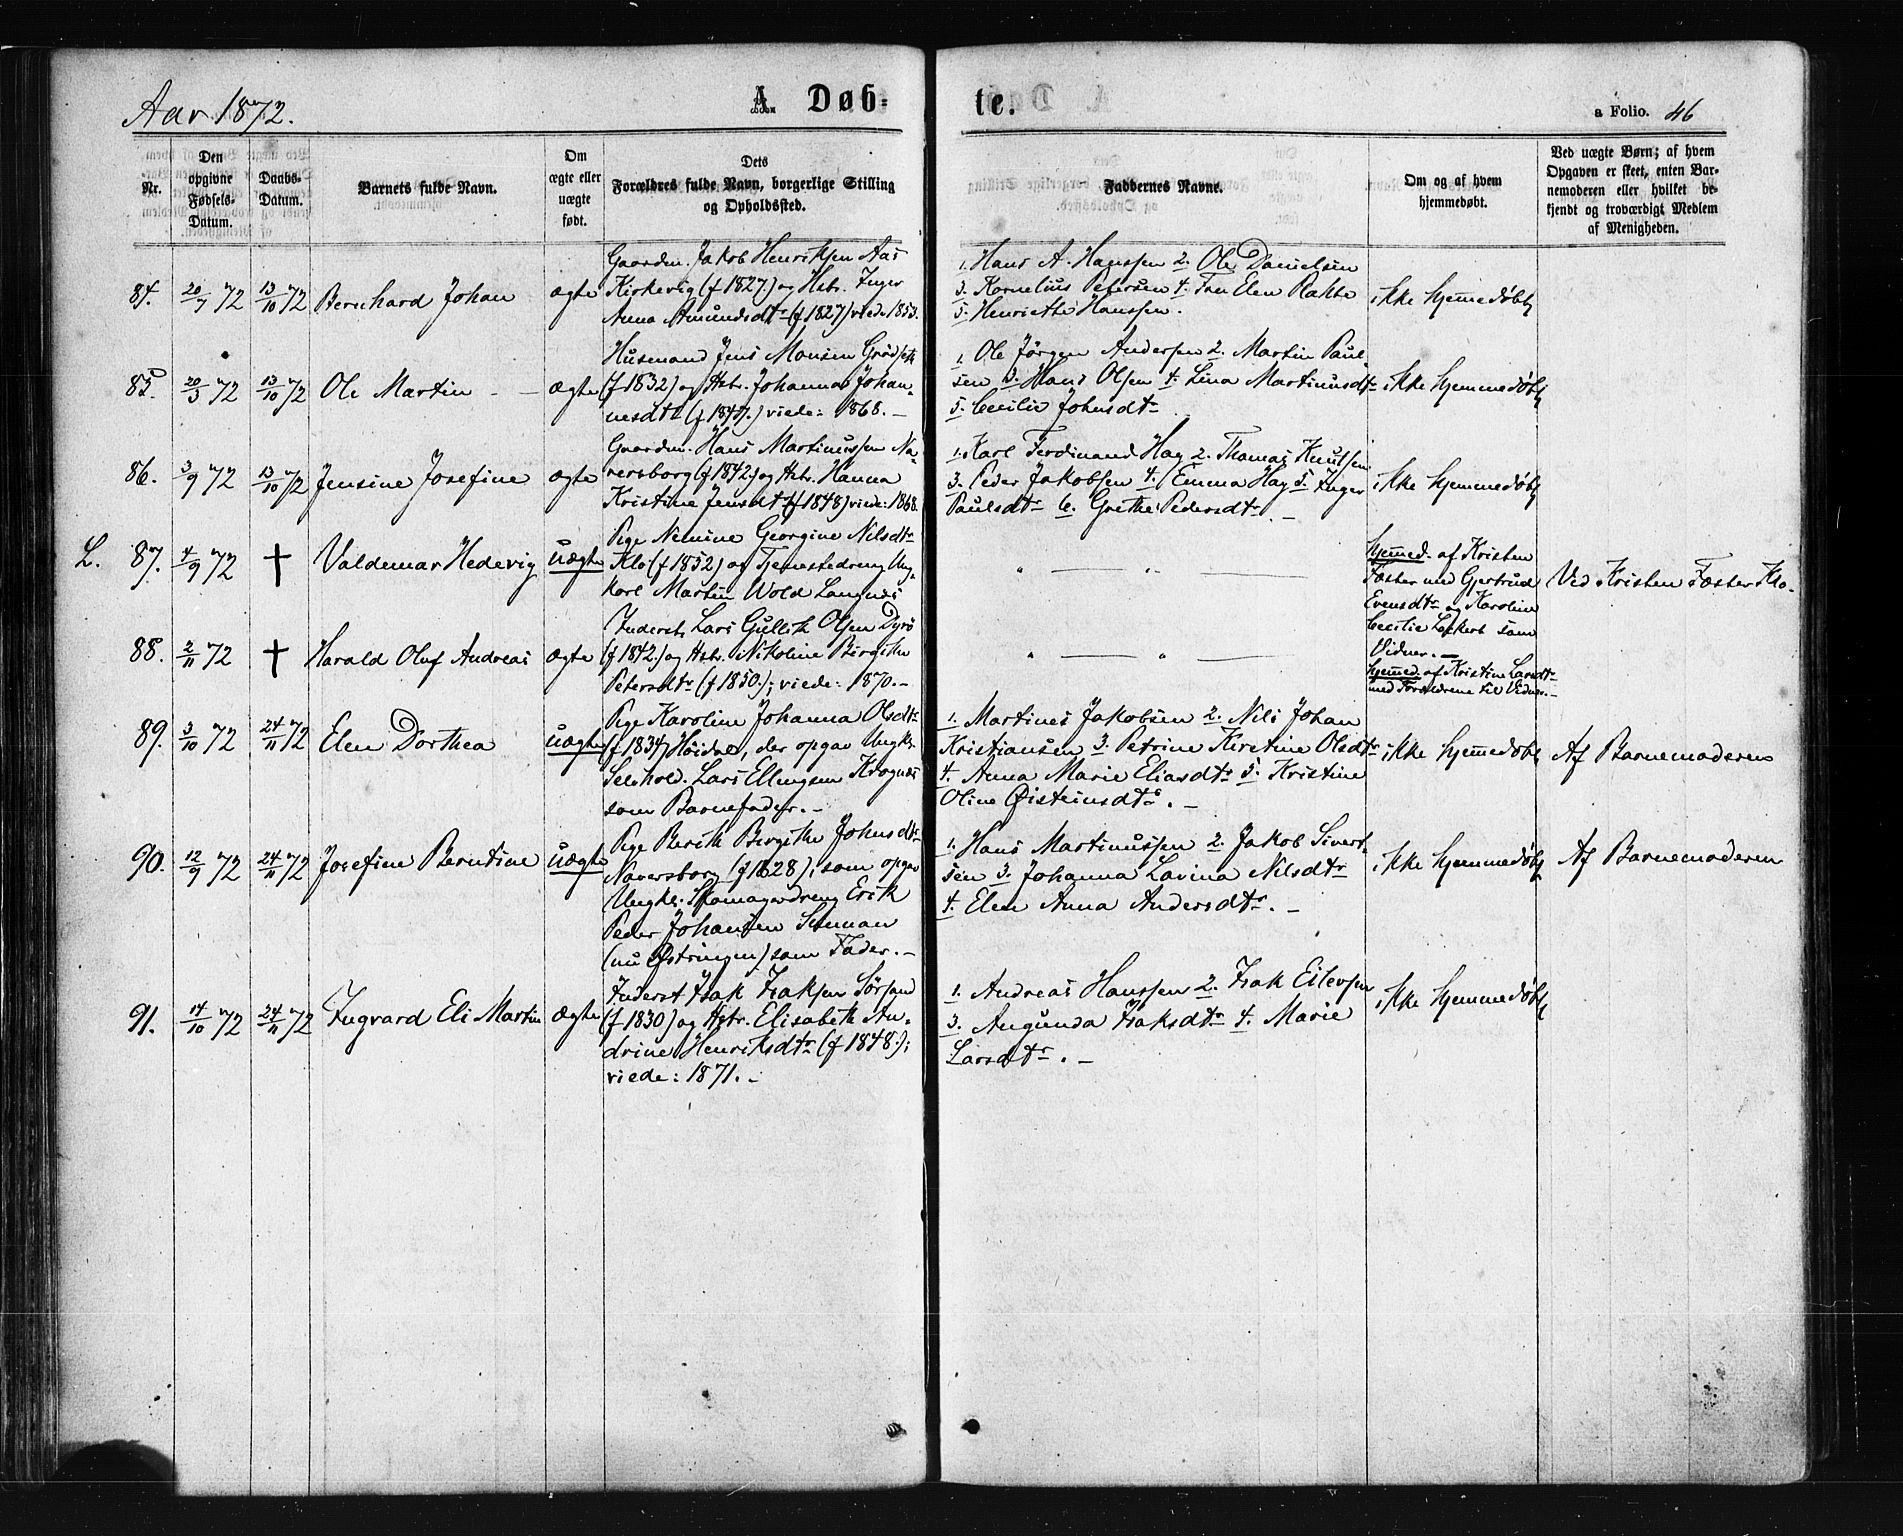 Aar 1872.
A. Døb-
te.
a Folio. 46
Nr.
Den opgivne Fødsels-Datum.
Daabs-Datum.
Barnets fulde Navn.
Om ægte eller uægte født.
Dets Forældres fulde Navn, borgerlige Stilling og Opholdssted.
Faddernes Navne.
Om og af hvem hjemmedøbt.
Ved uægte Børn; af hvem Opgaven er skeet, enten Barnemoderen eller hvilket bekjendt og troværdigt Medlem af Menigheden.
84. 20/7 72 13/10 72 Bernhard Johan ægte
Gaardm. Jakob Henriksen Aas
Kirkevig (f 1827.) og Hstr. Inger
Anna Amundsdtr (f 1827) viede 1853.
1. Hans A. Hanssen 2. Ole Danielsen
3. Kornelius Petersen 4. Fru Elen Rakke
5. Henriette Hanssen.
ikke hjemmedøbt
85. 20/5 72 13/10 72 Ole Martin - - ægte
Husemand Jens Monsen
(f 1832) og Hstr. Johanna Johan-
nesdtr (f 1847.) viede: 1868. -
1. Ole Jörgen Andersen 2. Martin Paul-
sen 3. Hans Olsen 4. Lina Martinusdtr
5. Cecilie Johnsdtr
ikke hjemmedøbt
86. 3/9 72 13/10 72 Jensine Josefine ægte
Gaardm. Hans Martinussen Na-
versborg (f 1842.) og Hstr. Hanna
Kristine Jensdtr (f 1848) viede: 1868.
1. Karl Ferdinand Hag 2. Thomas Knutsen
3. Peder Jakobsen 4. Emma Hag 5. Inger
Paulsdtr 6. Grethe Pedersdtr. -
ikke hjemmedøbt
L. 87. 4/9 72 † Valdemar Hedevig uægte
Pige Nemine Georgine Nilsdtr
Klo (f 1852) og Tjenestedreng Ung-
karl Martin Wold Langnes
" — " —
hjemmed. af Kristen
Fæster med Gjertrud
Evensdtr og Karoline
Cecilie Lockert som
Vidner. -
Ved Kristen Fæster Klo.
88. 2/11 72 † Harald Oluf Andreas ægte
Inderst Lars Gullik Olsen Dyrö
(f 1842.) og Hstr. Nikoline Birgithe
Petersdtr (f 1850.); viede: 1870. -
" — " —
hjemmed. af Kristine Larsdtr
med Forældrene til Vidner. -
89. 3/10 72 24/11 72 Elen Dorthea uægte
Pige Karoline Johanna Olsdtr
(f 1834) Höidal, der opgav Ungk.
Selvhold. Lars Ellingsen Krognes
som Barnefader. -
1. Martines Jakobsen 2. Nils Johan
Kristiansen 3. Petrine Kirstine Olsdtr
4. Anna Marie Eliasdtr 5. Kristine
Oline Øisteinsdtr. -
ikke hjemmedøbt
Af Barnemoderen
90. 12/9 72 24/11 72 Josefine Berntine uægte
Pige Berith Birgithe Johnsdtr
Naversborg (f 1828); som opgav
Ungk. Skomagerdreng Erik
Peder Johansen
(nu Østringen) som Fader. -
1. Hans Martinussen 2. Jakob Sivert-
sen 3. Johanna Lavina Nilsdtr
4. Elen Anna Andersdtr. -
ikke hjemmedøbt
Af Barnemoderen
91. 14/10 72 24/11 72 Ingvard Eli Martin ægte
Inderst Isak Isaksen Sörsand
(f 1830) og Hstr. Elisabeth An-
drine Henriksdtr (f 1848.);
viede: 1871. -
1. Andreas Hanssen 2. Isak Eilevsen
3. Angunda Isaksdtr 4. Marie
Larsdtr. -
ikke hjemmedøbt